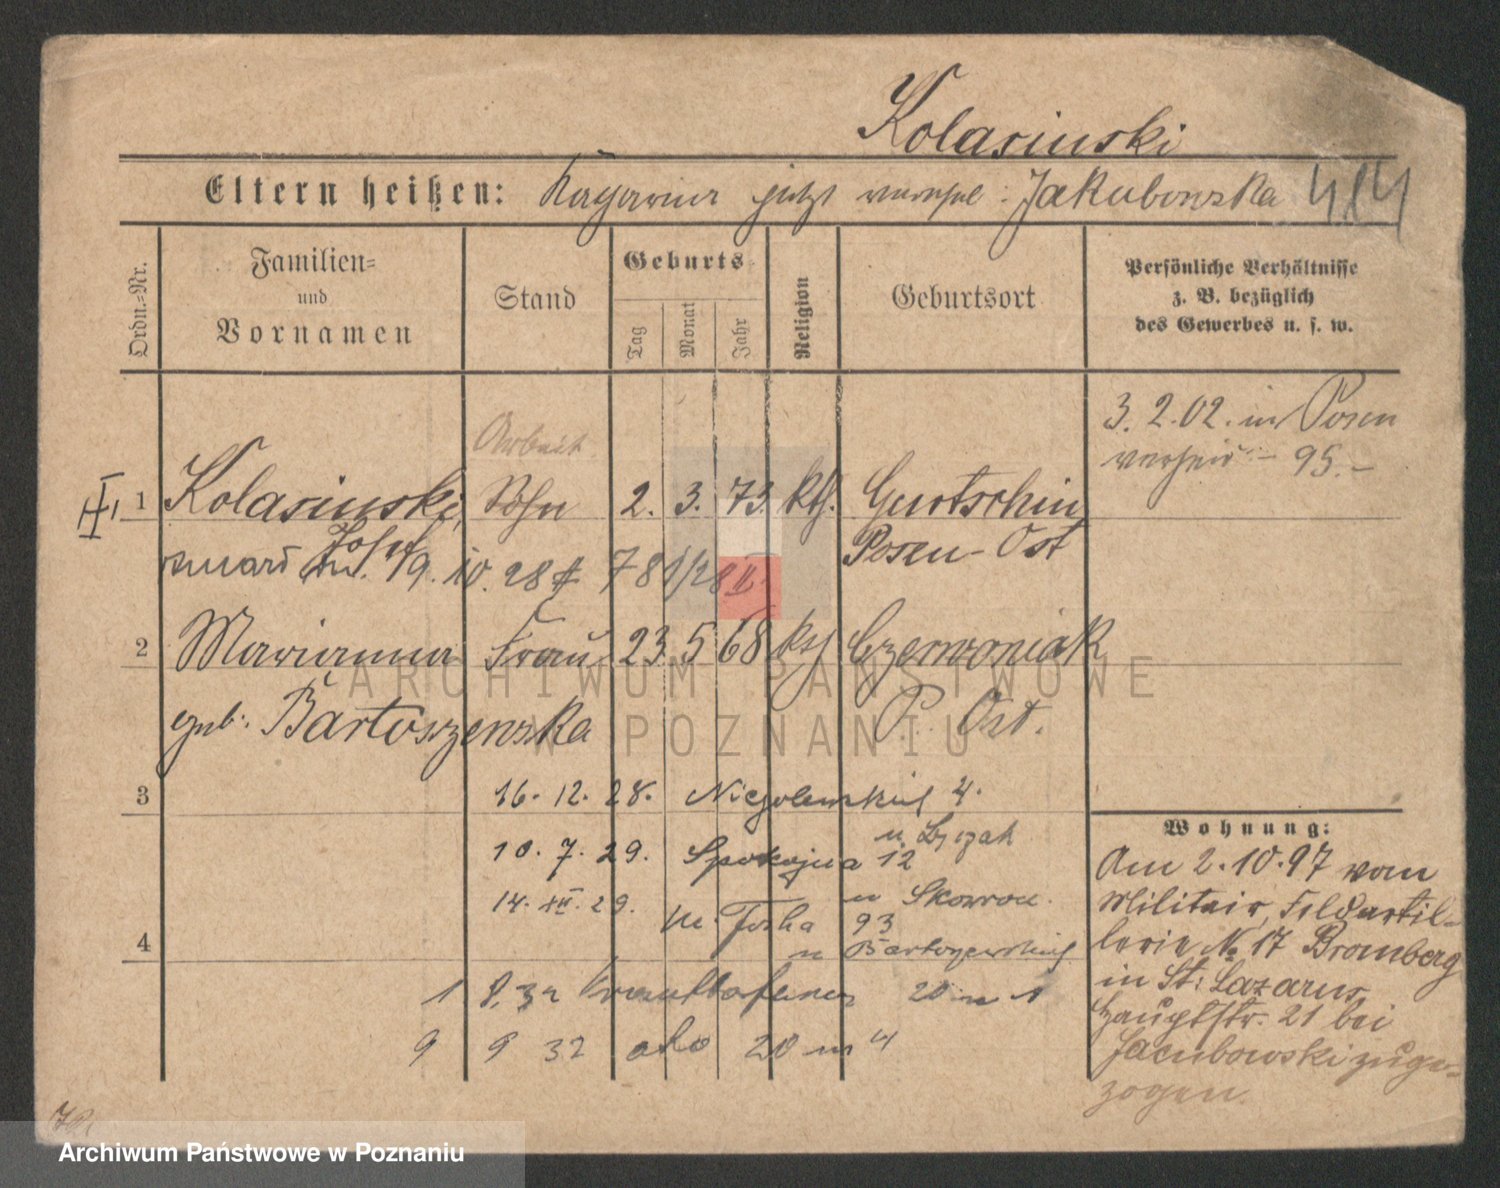 Kolasinski
Eltern heißen: jetzt verehel: Jakubowska
Ordn.=Nr.
Familien=
und
Vornamen
Stand
Geburts
Tag
Monat
Jahr
Religion
Geburtsort
Persönliche Verhältnisse
z. B. bezüglich
des Gewerbes u. s. w.
3. 2. 02. in Posen
verheir: 95.-
Arbeit.
1 Kolasinski, Sohn 2. 3. 73. kth. Gurtschin
Josef Posen-Ost
zmarł dn. 19. 10. 28 781/28 II.
2 Marianna Frau 23. 5 68 kth Czerwoniak
geb: Bartoszewska P. Ost.
3 16. 12. 28. Niegolewskich 4.
10. 7. 29. Spokojna 12
14. XII. 29. u Skowron.
m. Focha 93
4
1 8. 32 20 m 1
9 9 32 dto 20 m 4
Wohnung:
Am 2. 10. 97 vom
Militair, Feldartil-
lerie № 17 Bromberg
in St: Lazarus
Hauptstr. 21 bei
Jacubowski zuge-
zogen.
ARCHIWUM PAŃSTWOWE
W POZNANIU
Archiwum Państwowe w Poznaniu